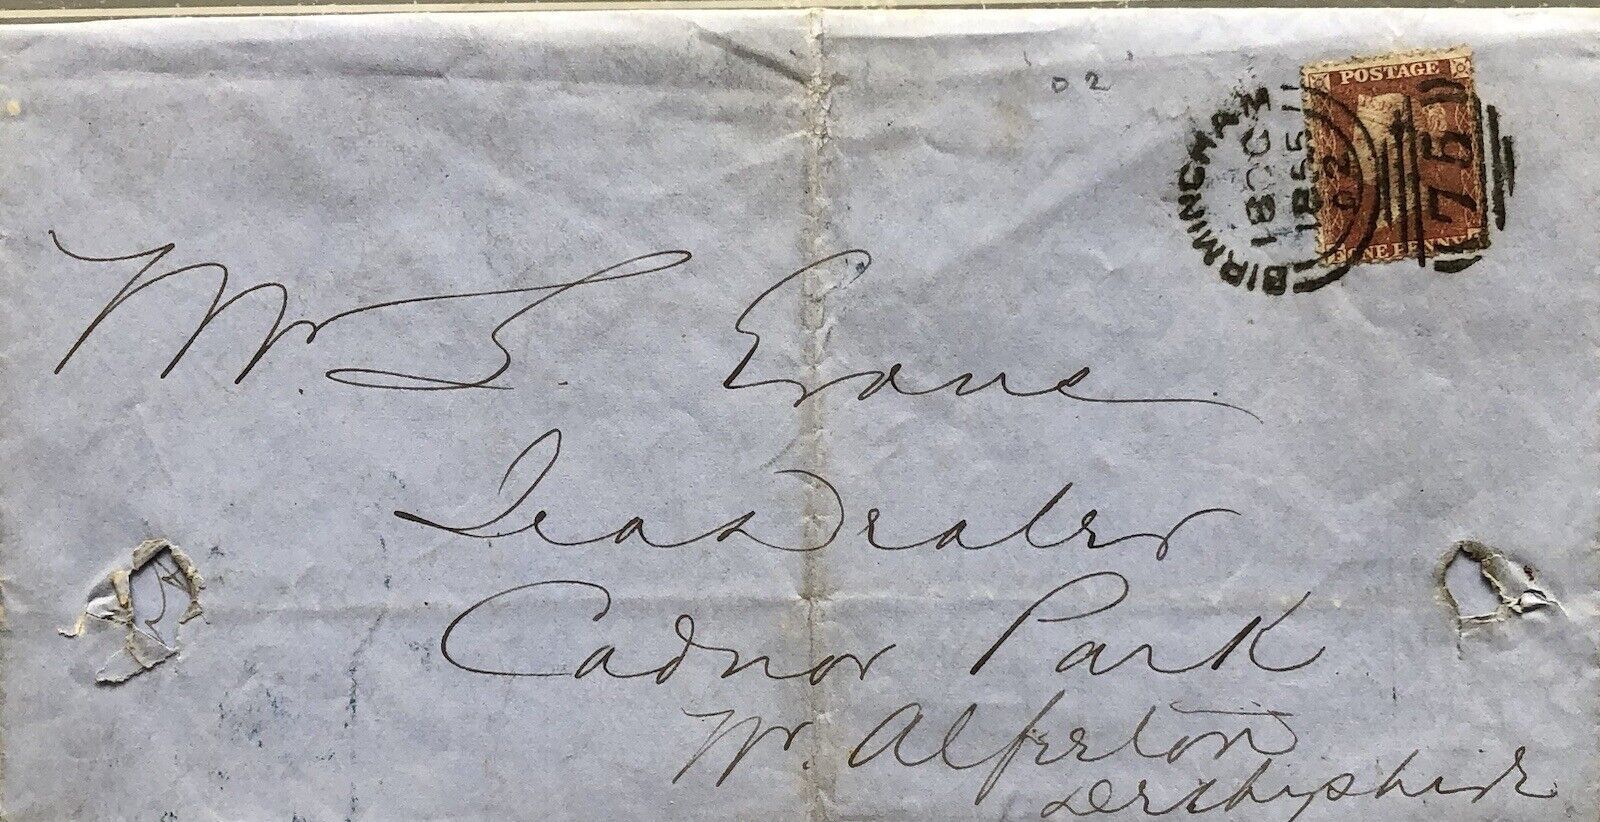 02
BIRMINGHAM
1855
02
75
POSTAGE
ONE PENNY
Mr. S. Evans
Tea Dealer
Cadnor Park
Nr. Alfreton
Derbyshire